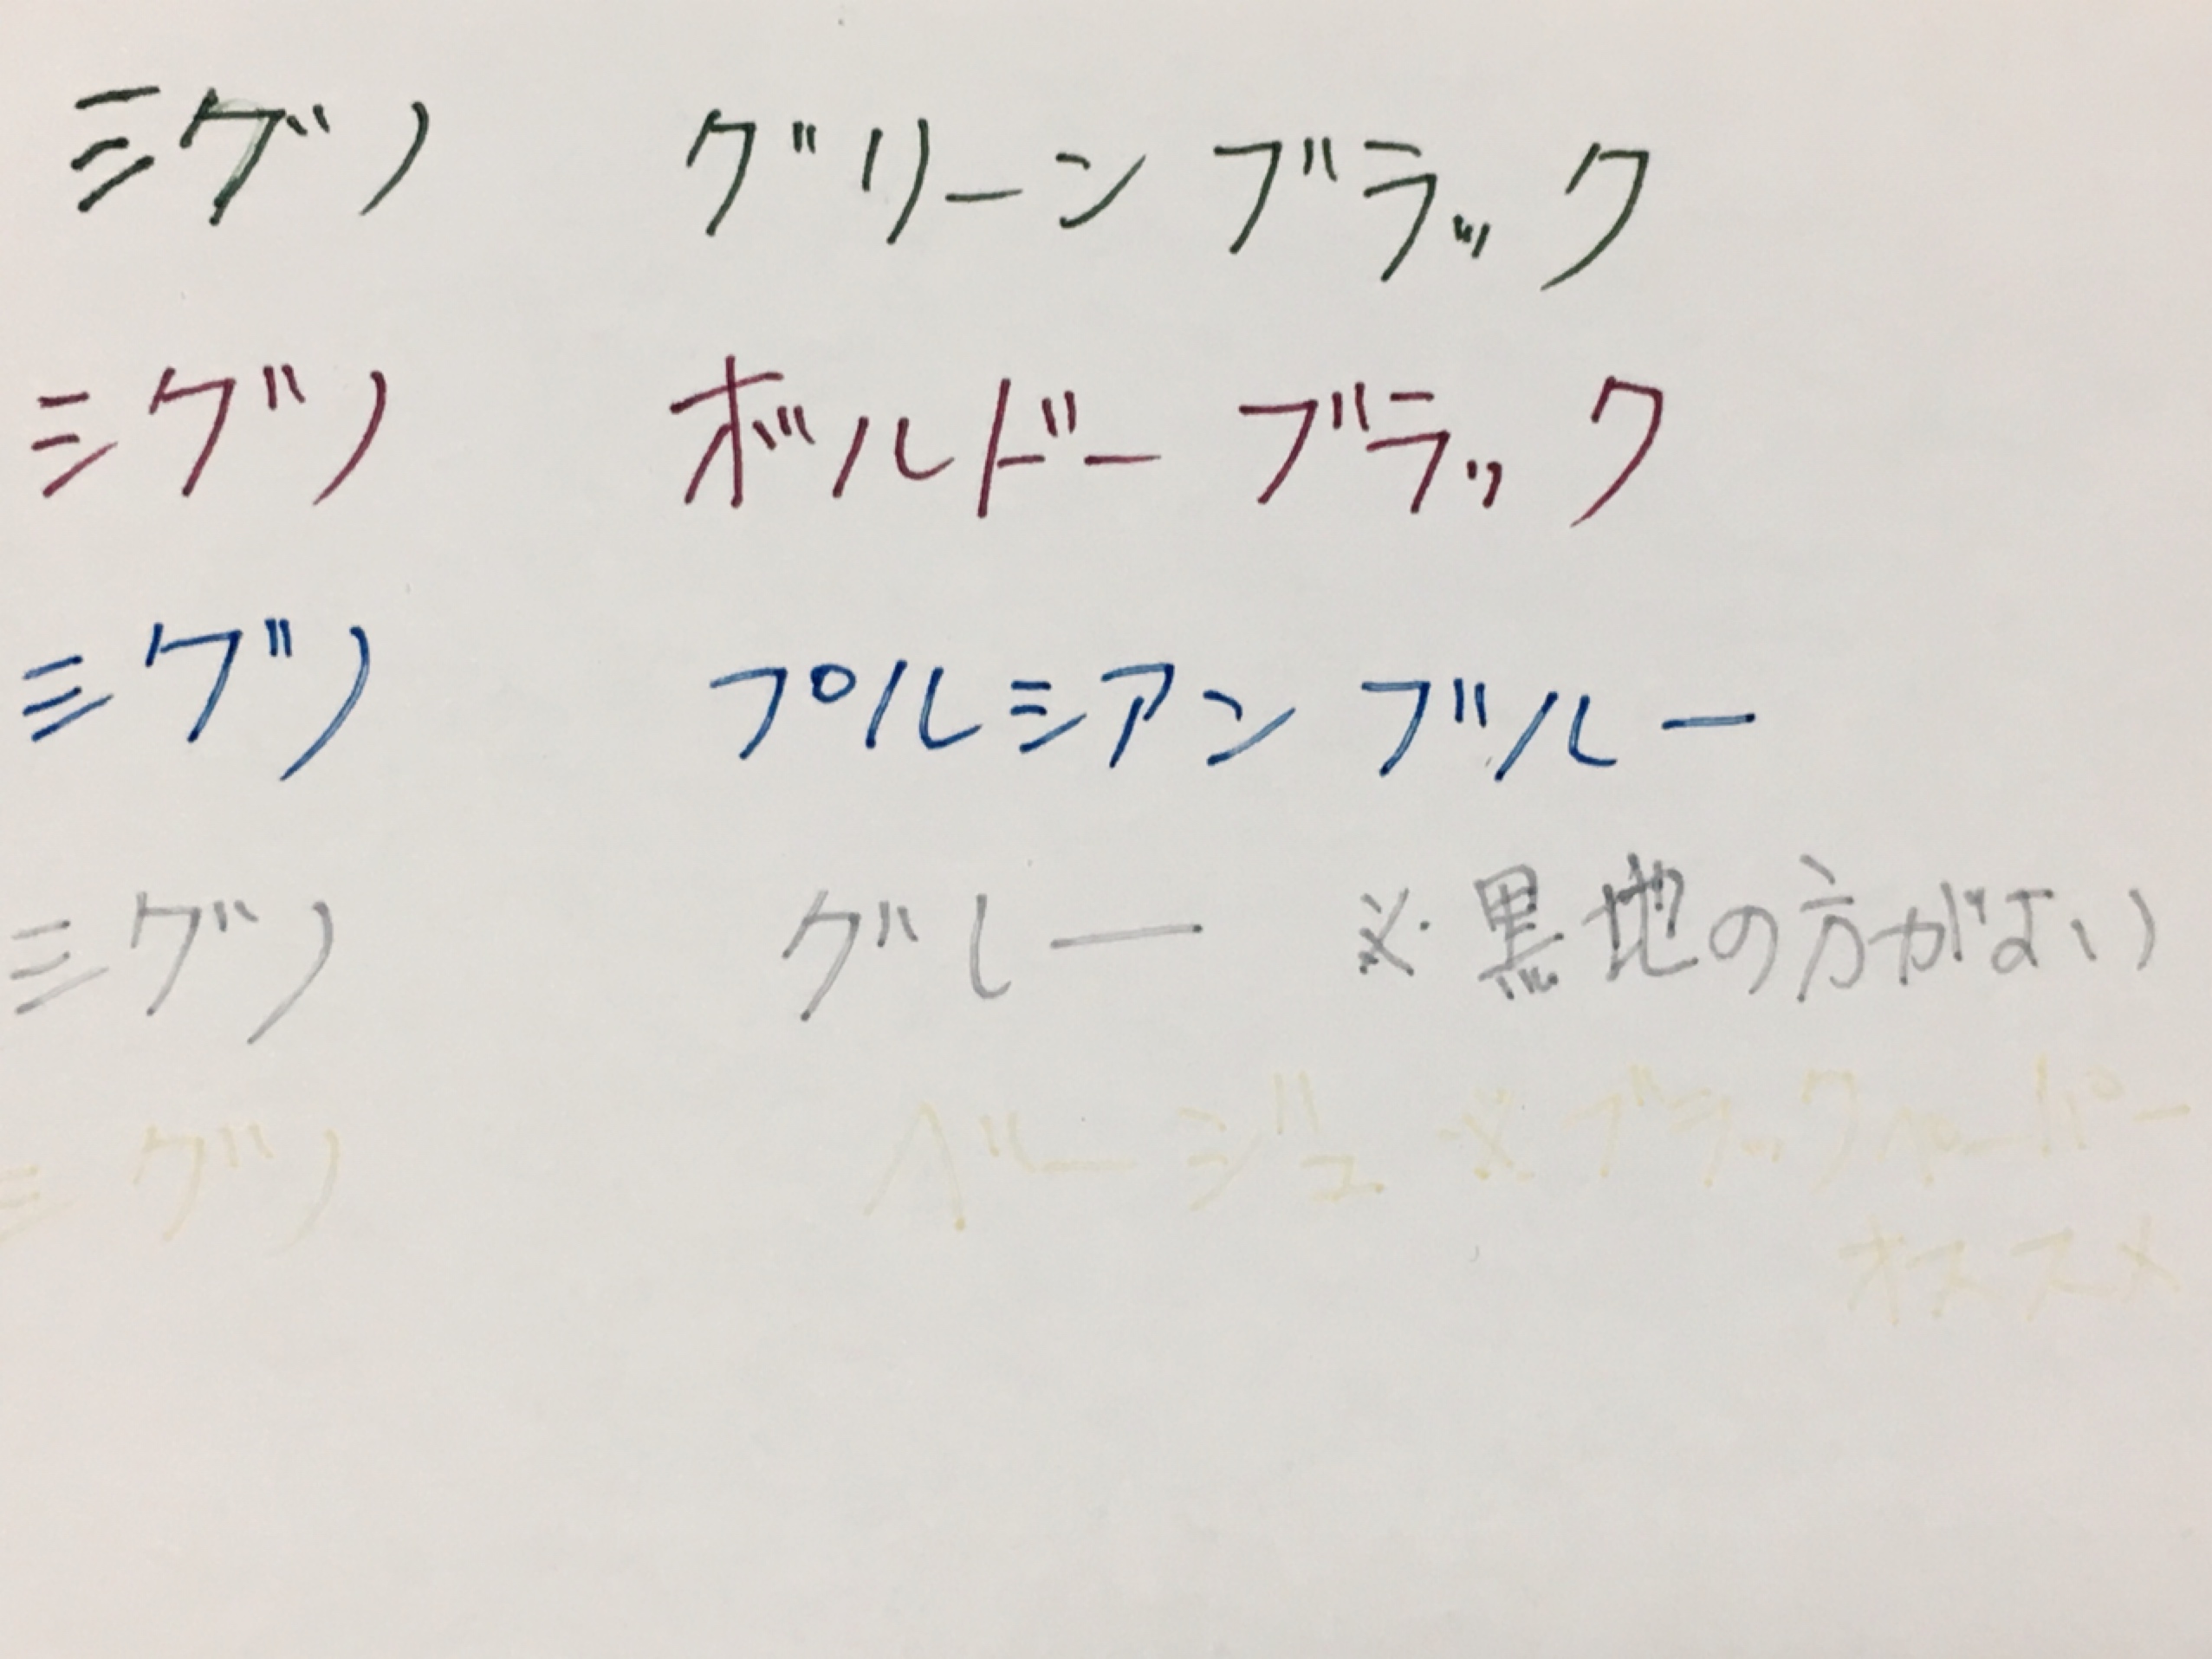 シグノ グリーンブラック
シグノ ボルドーブラック
シグノ プルシアンブルー
シグノ グレー ※黒地の方がよい
シグノ ベージュ ※ブラックペーパー
オススメ